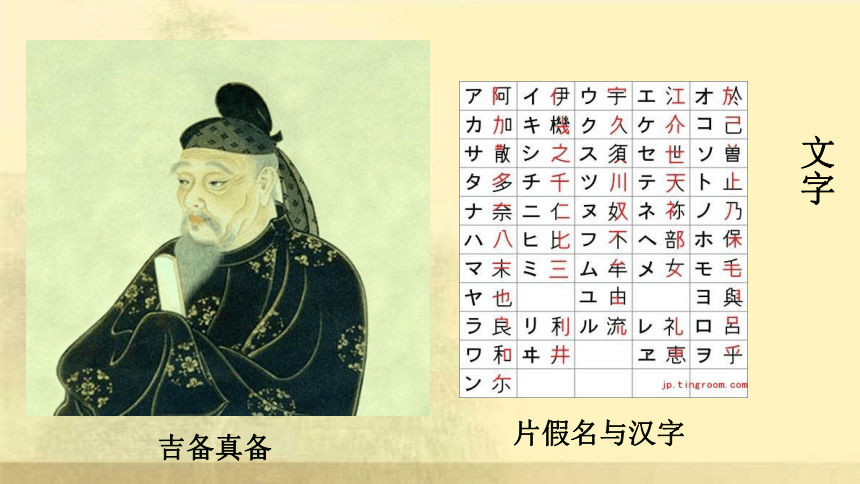 ア 阿 イ 伊 ウ 宇 エ 江 オ 於
カ 加 キ 機 ク 久 ケ 介 コ 己
サ 散 シ 之 ス 須 セ 世 ソ 曽
タ 多 チ 千 ツ 川 テ 天 ト 止
ナ 奈 ニ 仁 ヌ 奴 ネ 祢 ノ 乃
ハ 八 ヒ 比 フ 不 ヘ 部 ホ 保
マ 末 ミ 三 ム 牟 メ 女 モ 毛
ヤ 也 ユ 由 ヨ 與
ラ 良 リ 利 ル 流 レ 礼 ロ 呂
ワ 和 ヰ 井 ヱ 恵 ヲ 乎
ン 尓 jp.tingroom.com
文字
吉备真备
片假名与汉字